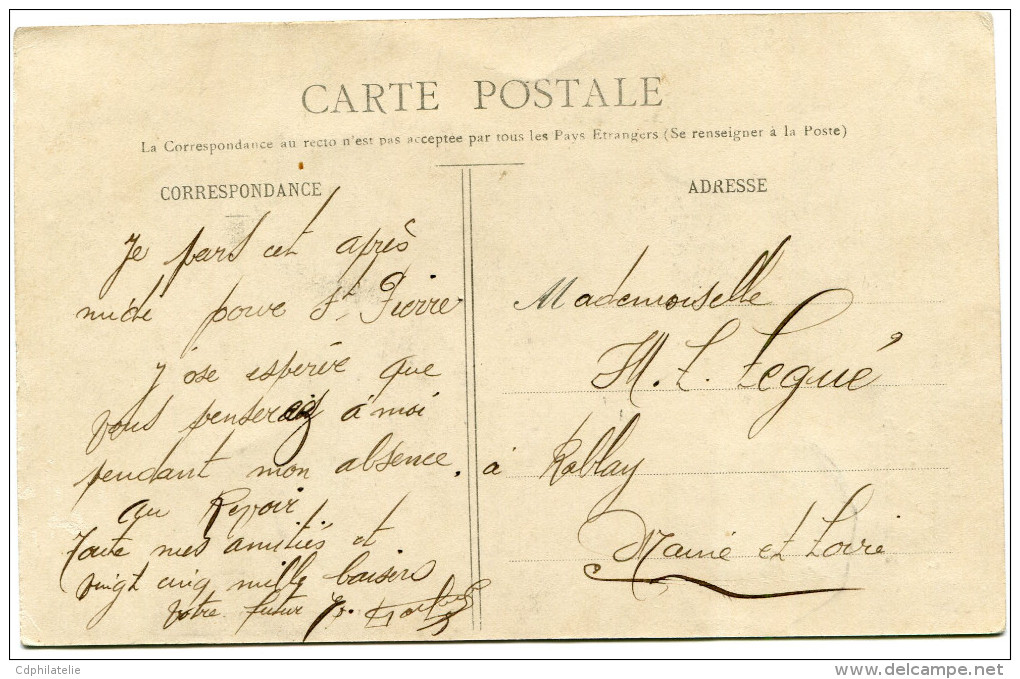 CARTE POSTALE
La Correspondance au recto n'est pas acceptée par tous les Pays Etrangers (Se renseigner à la Poste)
CORRESPONDANCE
Je pars cet après
midi pour St Pierre
J ose espérér que
vous penserez à moi
pendant mon absence.
au Revoir
Toute mes amitiés et
vingt cinq mille baisers
Votre futur
ADRESSE
Mademoiselle
M. L. Legué
à Rablay
Maine et Loire
Cdphilatelie
http://www.delcampe.net